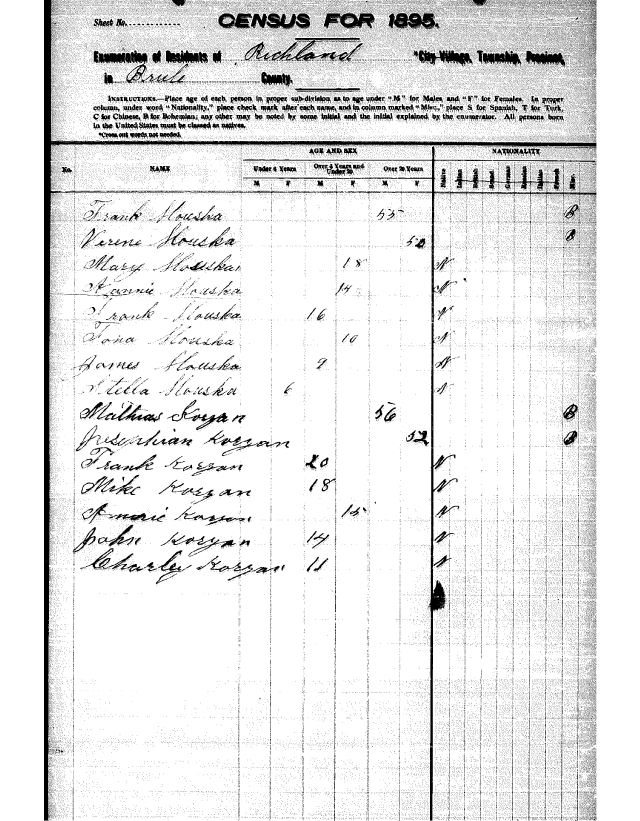 Sheet No.
CENSUS FOR 1895.
Enumeration of Residents of Richland *City, Village, Township, Precinct,
in Brule County.
INSTRUCTIONS.—Place age of each person in proper sub-division as to age under "M" for Males and "F" for Females. In proper
column, under word "Nationality," place check mark after each name, and in column marked "Misc," place S for Spanish, T for Turk,
C for Chinese, B for Bohemian; any other may be noted by some initial and the initial explained by the enumerator. All persons born
in the United States must be classed as natives.
*Cross out words not needed.
AGE AND SEX NATIONALITY
No. NAME Under 6 Years Over 6 Years and Under 20 Over 20 Years
M F M F M F Native
Frank Slouska 55 B
Verene Slouska 50 B
Mary Slouska 18 N
Nannie Slouska 14 N
Frank Slouska 16 N
Tona Slouska 10 N
James Slouska 9 N
Stella Slouska 6 N
Mathias Korzan 56 B
Josephian Korzan 52 B
Frank Korzan 20 N
Mike Korzan 18 N
Korzan 15 N
John Korzan 14 N
Charley Korzan 11 N